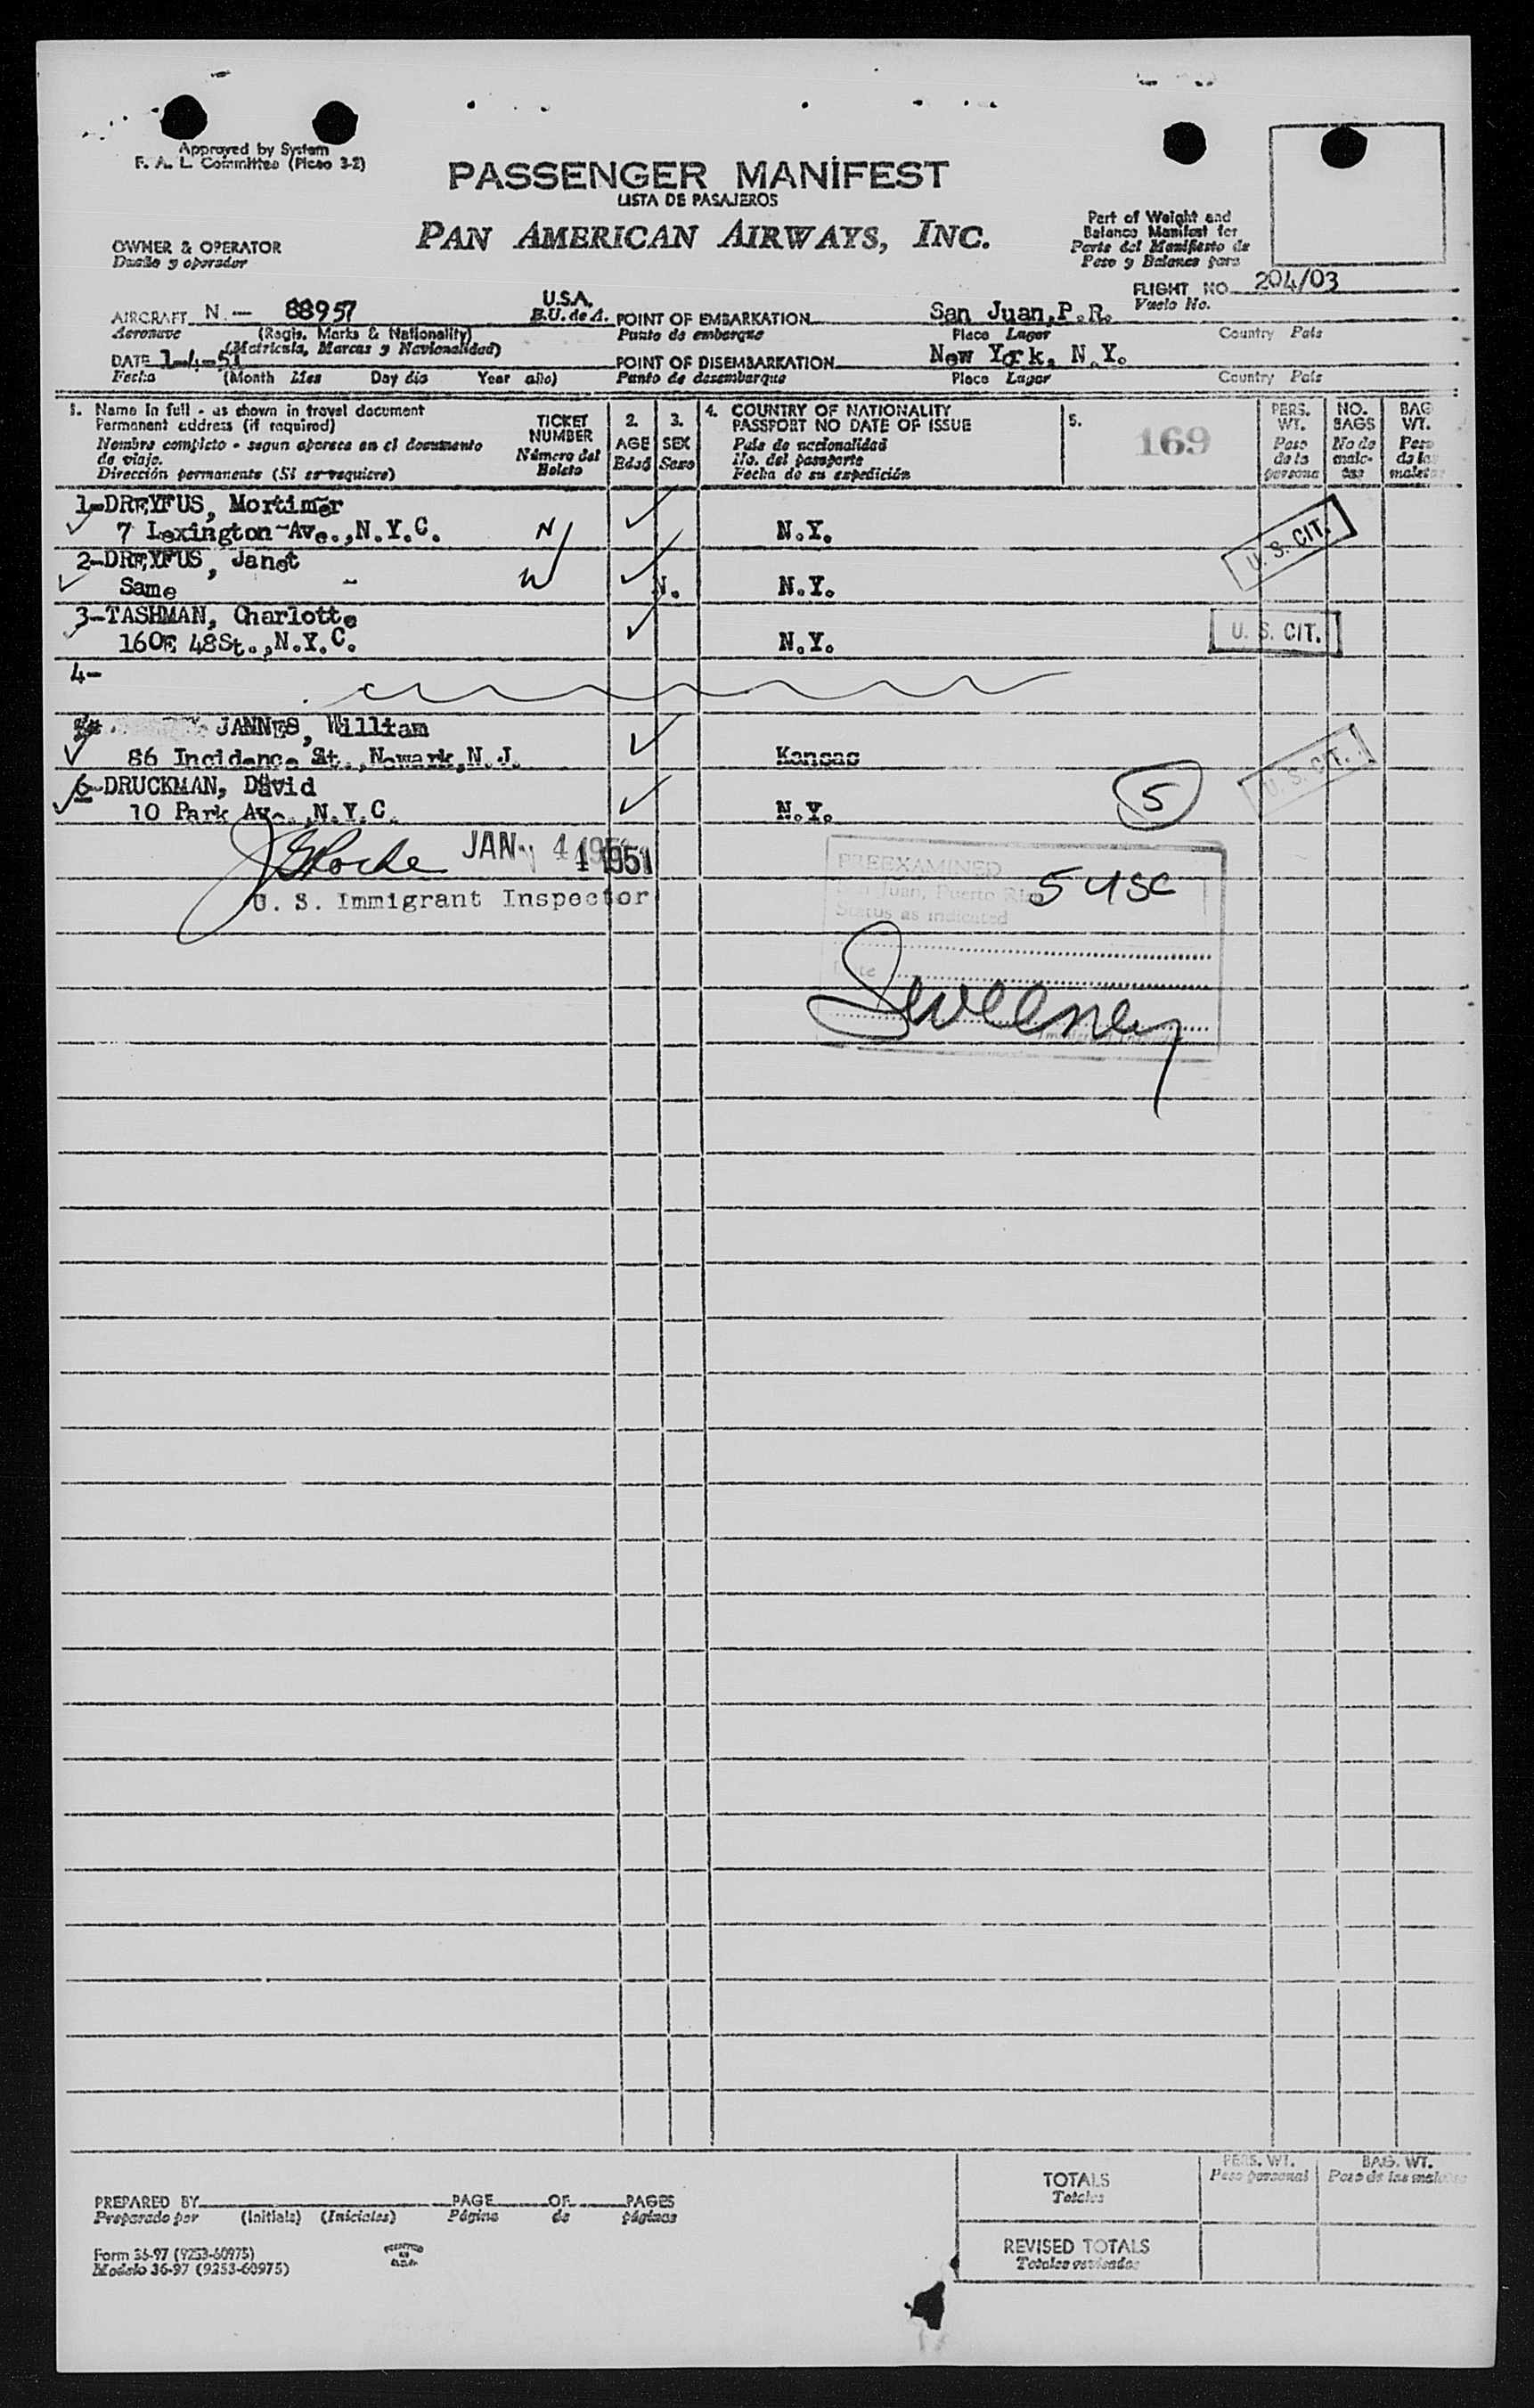 Approved by System
F. A. L. Committee (Picao 3-2)
PASSENGER MANIFEST
LISTA DE PASAJEROS
PAN AMERICAN AIRWAYS, INC.
Part of Weight and
Balance Manifest for
Parte del Manifiesto de
Peso y Balance para
OWNER & OPERATOR
Dueño y operador
FLIGHT NO. 204/03
Vuelo No.
AIRCRAFT N - 88957 U.S.A. POINT OF EMBARKATION San Juan, P.R.
Aeronave (Regis. Marks & Nationality) E.U. de A. Punto de embarque Place Lugar Country País
(Matricula, Marcas y Nacionalidad)
DATE 1-4-51 POINT OF DISEMBARKATION New York, N.Y.
Fecha (Month Mes Day dia Year año) Punto de desembarque Place Lugar Country País
1. Name in full - as shown in travel document
Permanent address (if required)
Nombre completo - segun aparece en el documento
de viaje.
Dirección permanente (Si se requiere)
TICKET
NUMBER
Número del
Boleto
2.
AGE
Edad
3.
SEX
Sexo
4. COUNTRY OF NATIONALITY
PASSPORT NO DATE OF ISSUE
País de nacionalidad
No. del pasaporte
Fecha de su expedición
5.
169
PERS.
WT.
Peso
de la
persona
NO.
BAGS
No de
male-
tas
BAG
WT.
Peso
de las
maletas
1-DREYFUS, Mortimer
7 Lexington Ave., N.Y.C. N N.Y. U. S. CIT.
2-DREYFUS, Janet
Same - N. N.Y.
3-TASHMAN, Charlotte
160E 48St., N.Y.C. N.Y. U. S. CIT.
4-
JANNES, William
86 Incidence St., Newark, N.J. Kansas U. S. CIT.
6-DRUCKMAN, David
10 Park Ave., N.Y.C. N.Y. 5
JAN 4 1951
U. S. Immigrant Inspector
PREEXAMINED
San Juan, Puerto Rico 5 USC
Status as indicated
Date
Sweeney
PREPARED BY PAGE OF PAGES
Preparado por (Initials) (Iniciales) Página de páginas
Form 36-97 (9253-60975)
Modelo 36-97 (9253-60975)
PERS. WT.
Peso personal
BAG. WT.
Peso de las maletas
TOTALS
Totales
REVISED TOTALS
Totales revisados